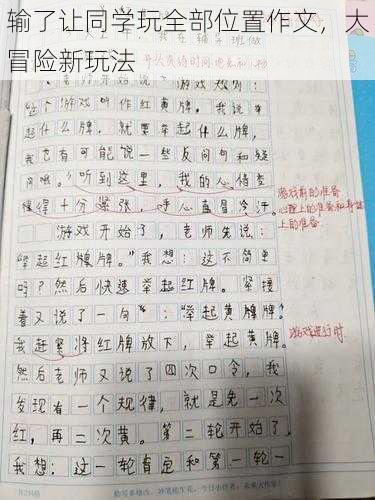 输了让同学玩全部位置作文，大
冒险新玩法
“这个游戏叫作红黄牌。我说
起什么牌，就要举起什么牌，
我它有可能说一些反问句和疑
问哦。”听到这里，我的心情变
得十分紧张，手心直冒冷汗。
游戏前的准备
心理上的准备和身体
上的准备
游戏开始了，老师先说：
“举起红牌牌。”我想：这不简单
吗？然后快速举起红牌。紧接
着又说了一句“：“举起黄牌牌
我赶紧将红牌放下，举起黄牌。
游戏进行时
然后老师又说了四次口令，我
发现有一个规律，就是先一次
红，再二次黄。第二轮开始了，
我想：这一轮肯定和第一轮一